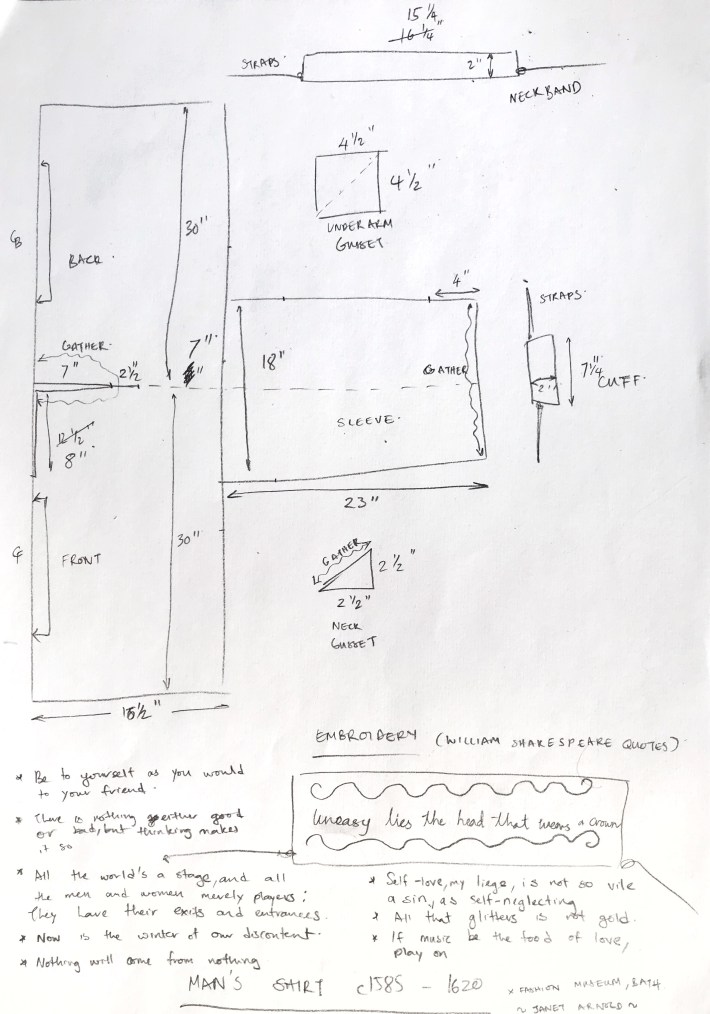 15 1/4
16 1/4"
STRAPS.
2"
NECKBAND
4 1/2"
4 1/2"
UNDERARM
GUSSET
30"
CB
BACK.
4"
STRAPS.
GATHER.
7"
7"
2 1/2
18"
GATHER
7 1/4"
2"
CUFF.
12 1/2"
8"
SLEEVE.
23"
CF
FRONT
30"
GATHER
2 1/2"
2 1/2"
NECK
GUSSET
15 1/2"
EMBROIDERY (WILLIAM SHAKESPEARE QUOTES)
Uneasy lies the head that wears a crown
* Be to yourself as you would
to your friend.
* There is nothing either good
or bad, but thinking makes
it so
* All the world's a stage, and all
the men and women merely players;
They have their exits and entrances.
* Now is the winter of our discontent.
* Nothing will come from nothing
* Self-love, my liege, is not so vile
a sin, as self-neglecting
* All that glitters is not gold.
* If music be the food of love,
play on
MAN'S SHIRT c1585 - 1620
* FASHION MUSEUM, BATH
~ JANET ARNOLD ~